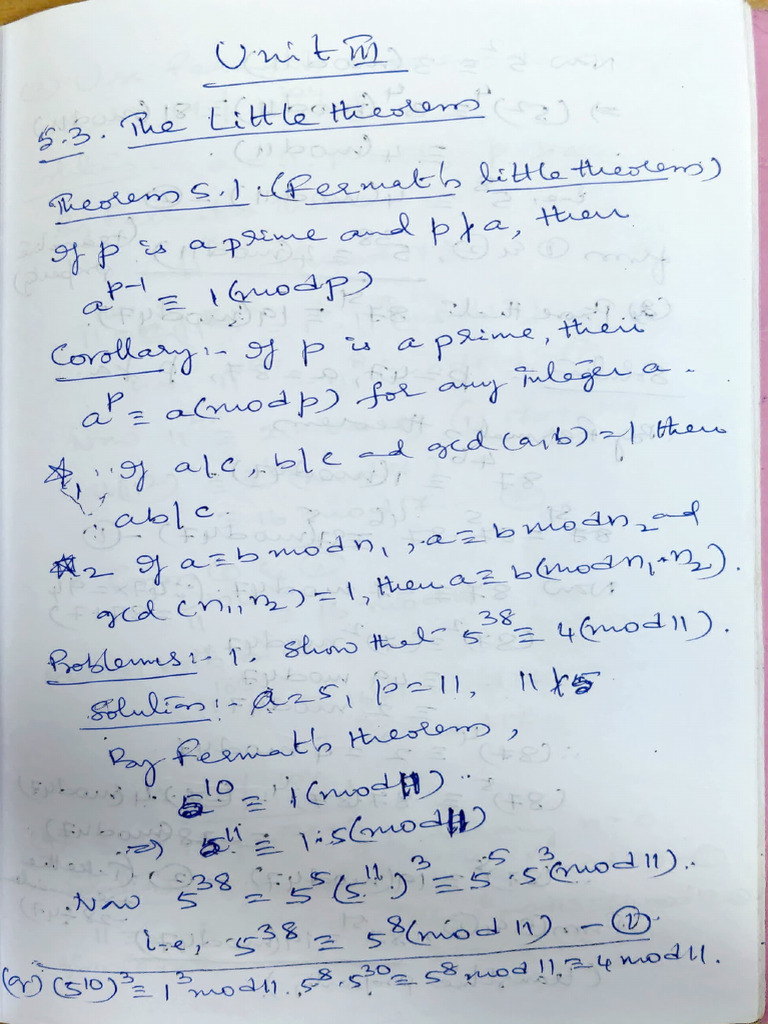 Unit III
5.3. The Little theorem
Theorem 5.1: (Fermat's little theorem)
If p is a prime and p∤a, then
a^{p-1} ≡ 1(mod p)
Corollary:- If p is a prime, then
a^p ≡ a(mod p) for any integer a.
☆1. If a|c, b|c and gcd(a,b)=1 then
ab|c.
☆2 If a≡b mod n₁, a≡b mod n₂ and
gcd(n₁,n₂)=1, then a≡b(mod n₁·n₂).
Problems:- 1. Show that 5^{38} ≡ 4(mod 11).
Solution:- a=5, p=11, 11∤5
By Fermat's theorem,
5^{10} ≡ 1(mod 11)
⇒ 5^{11} ≡ 1·5(mod 11)
Now 5^{38} = 5^5(5^{11})^3 ≡ 5^5·5^3(mod 11).
i.e, 5^{38} ≡ 5^8(mod 11) – ①
(or) (5^{10})^3 ≡ 1^3 mod 11. 5^8·5^{30} ≡ 5^8 mod 11 ≡ 4 mod 11.